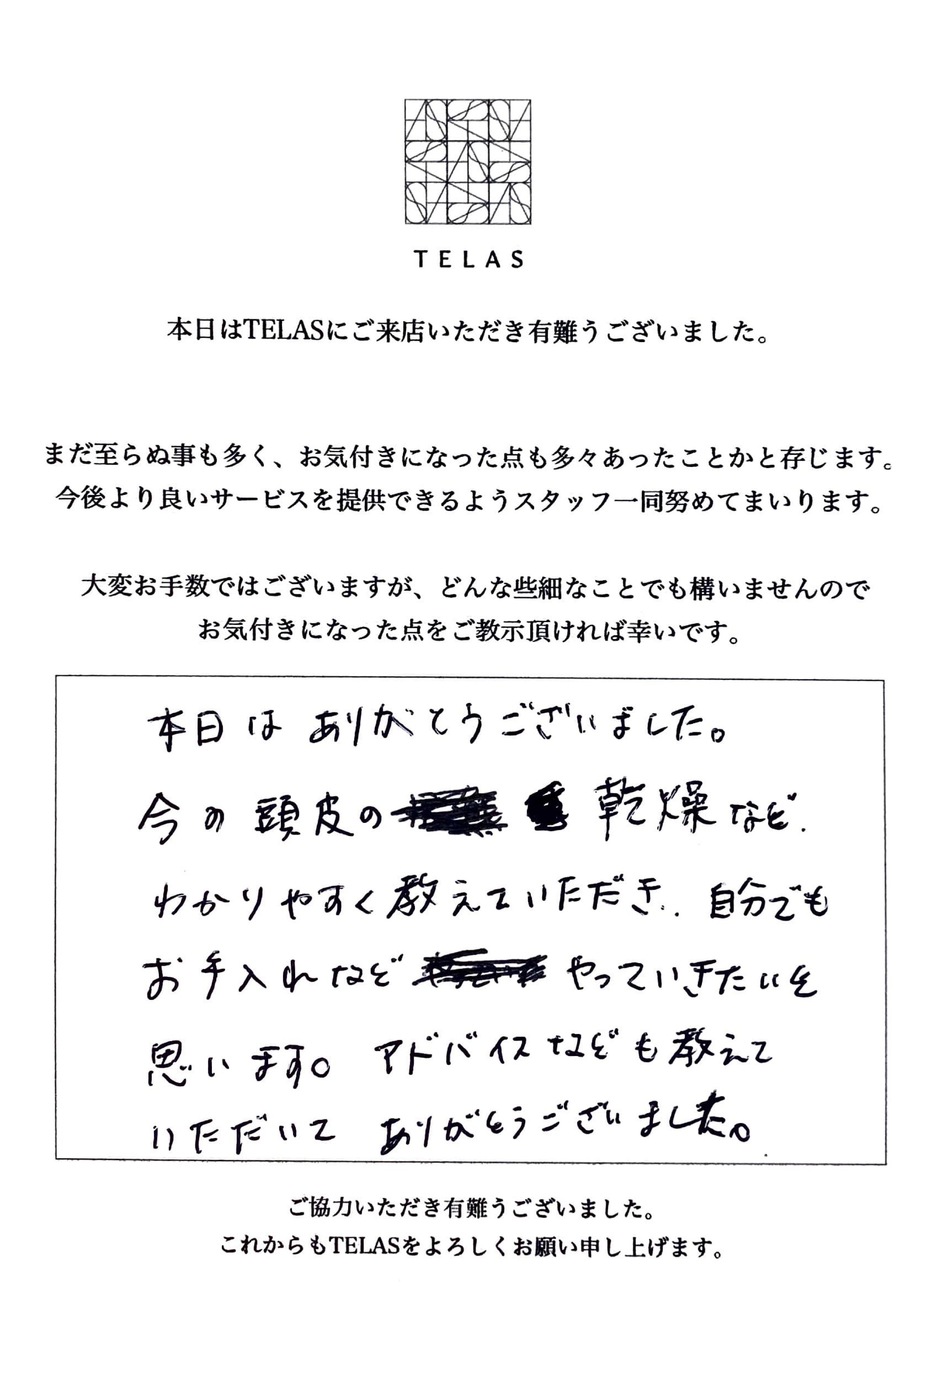 TELAS
本日はTELASにご来店いただき有難うございました。
まだ至らぬ事も多く、お気付きになった点も多々あったことかと存じます。
今後より良いサービスを提供できるようスタッフ一同努めてまいります。
大変お手数ではございますが、どんな些細なことでも構いませんので
お気付きになった点をご教示頂ければ幸いです。
本日は ありがとうございました。
今の頭皮の 乾燥など、
わかりやすく教えていただき、自分でも
お手入れなど やっていきたいと
思います。 アドバイスなども教えて
いただいて ありがとうございました。
ご協力いただき有難うございました。
これからもTELASをよろしくお願い申し上げます。